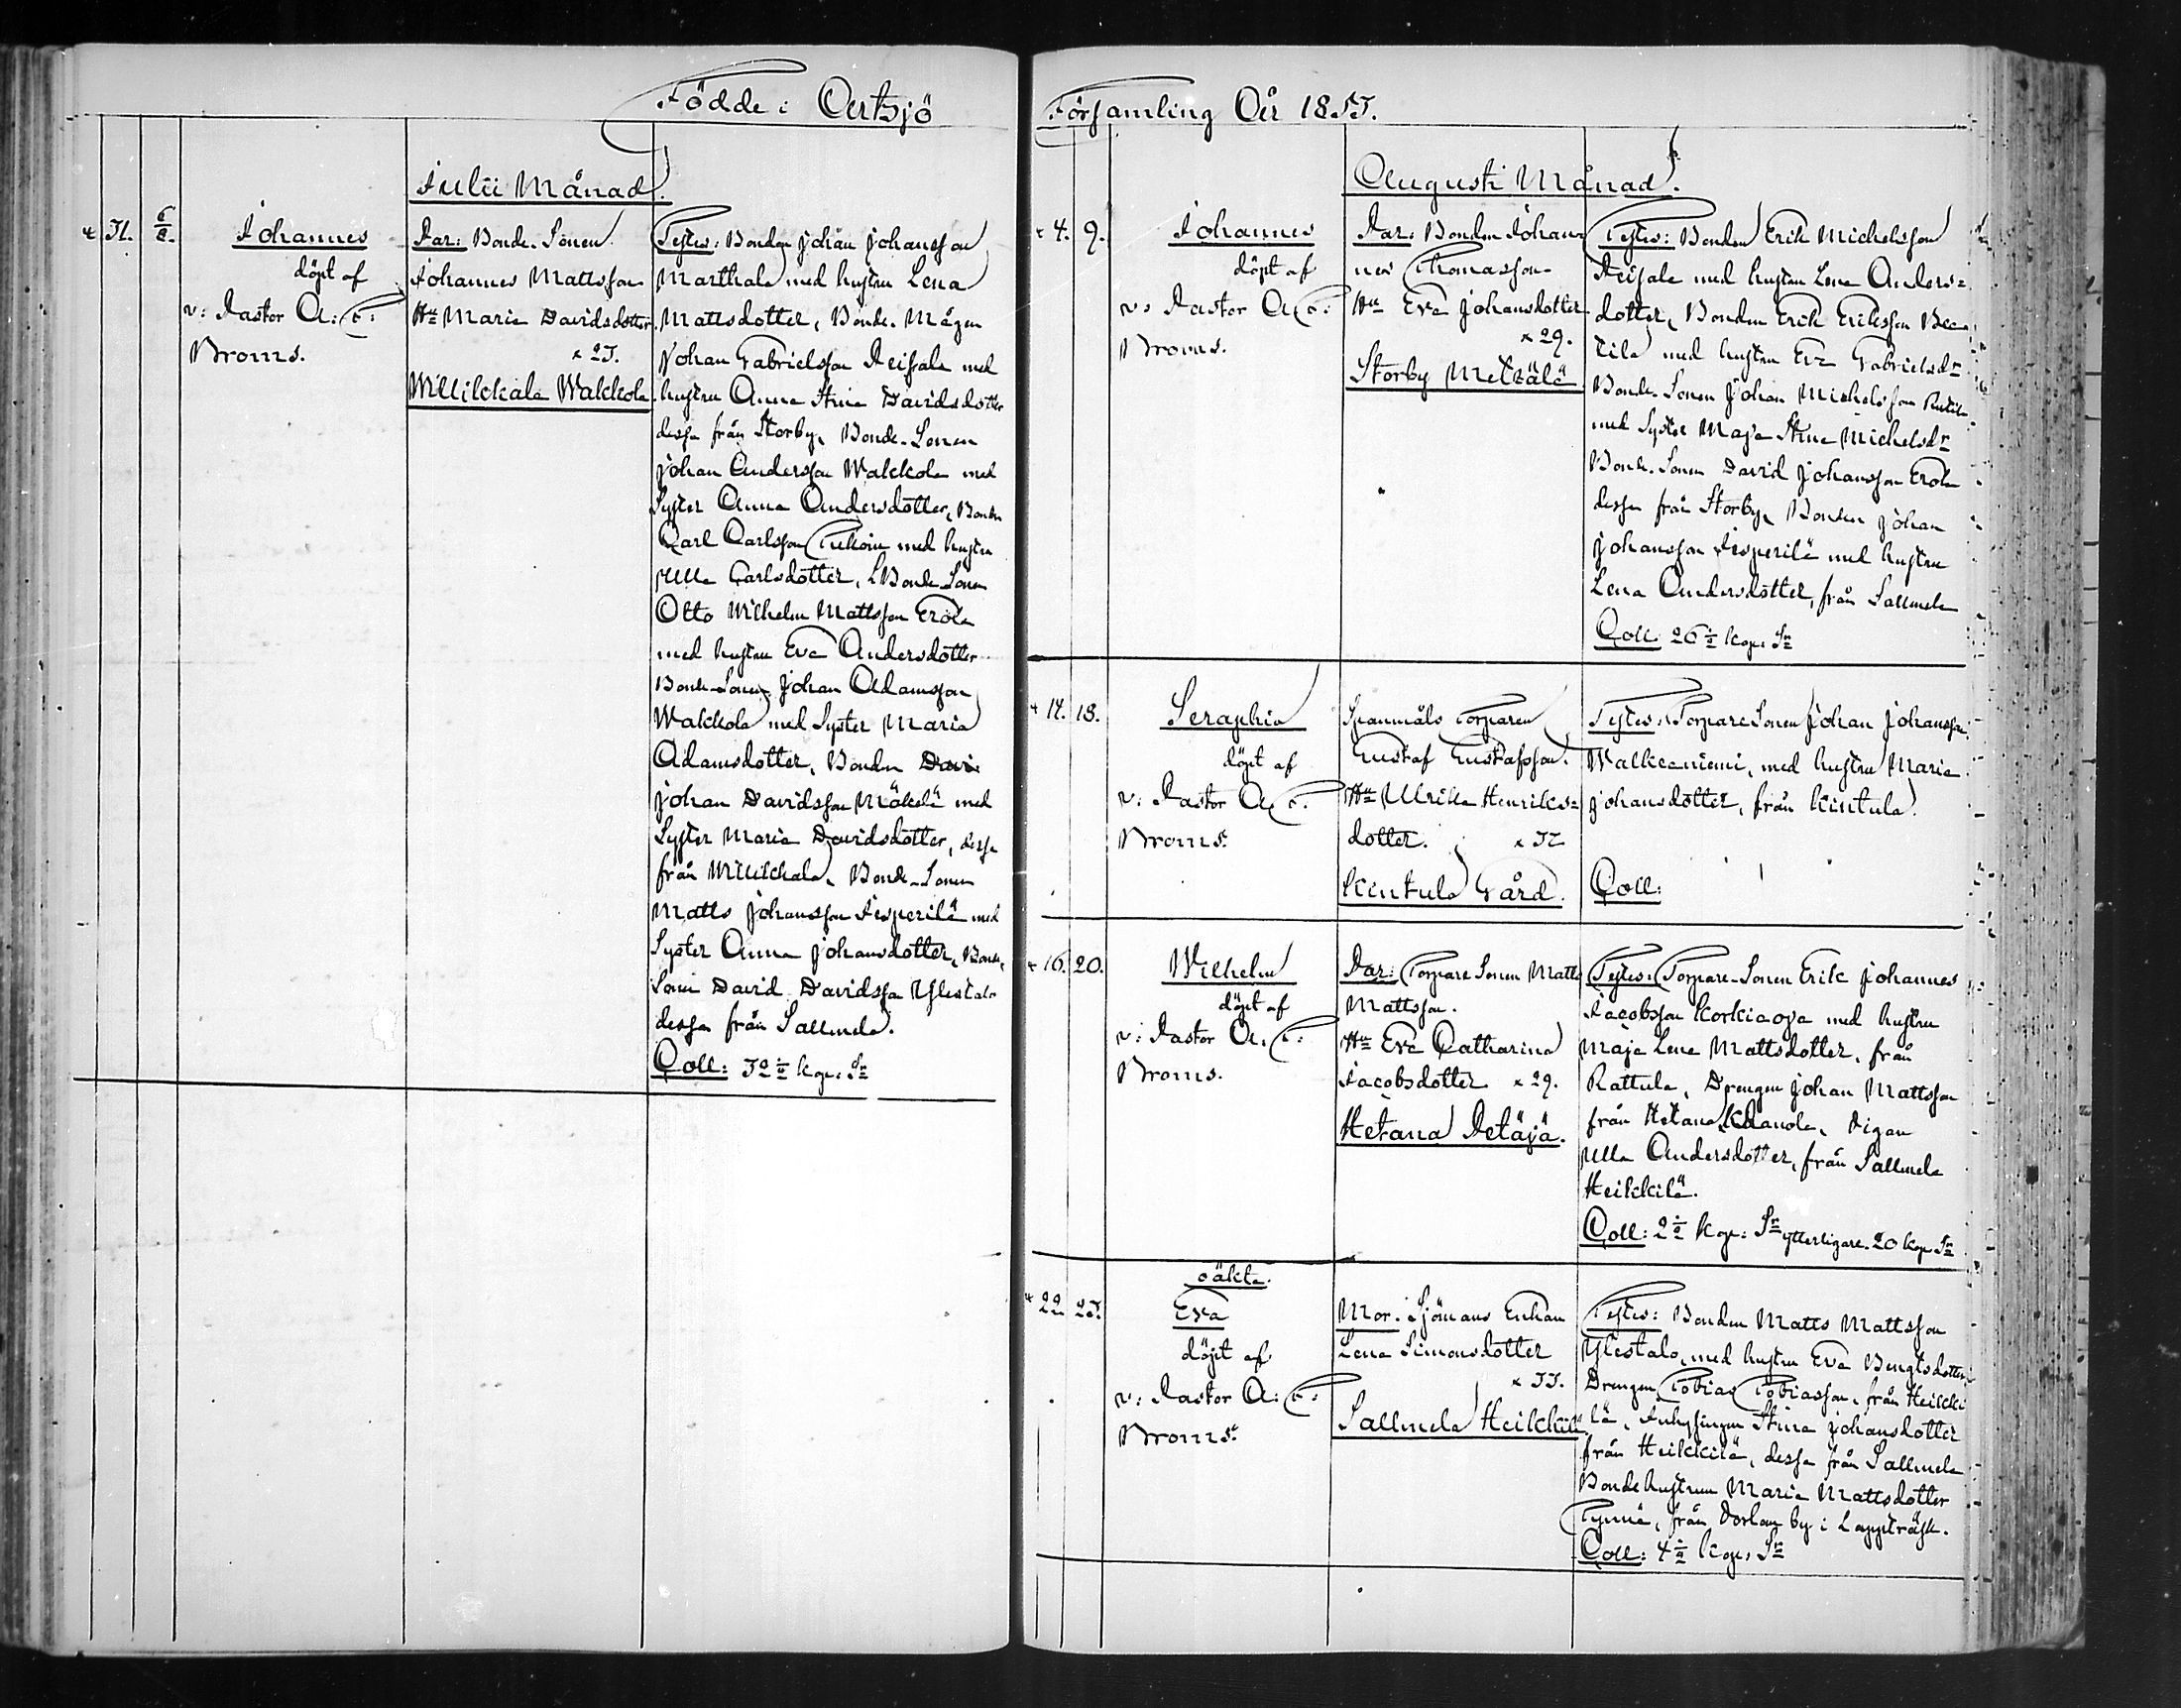 Födde i Artsjö
Julii Månad.
31. 6/8. Johannes
döpt af
v: Pastor A: F:
Broms.
Par: Bonde-Sonen
Johannes Mattsson
Hu Maria Davidsdotter
× 23.
Willikkala Wakkola
Testes: Bonden Johan Johansson
Marttala med hustru Lena
Mattsdotter, Bonde-Mågen
Johan Gabrielsson Peisala med
hustru Anna Stina Davidsdotter
dessa från Storby, Bonde-Sonen
Johan Andersson Wakkola med
Syster Anna Andersdotter, Bonden
Carl Carlsson med hustru
Ulla Carlsdotter, Bonde-Sonen
Otto Wilhelm Mattsson Erola
med hustru Eva Andersdotter
Bonde-Sonen Johan Adamsson
Wakkola med Syster Maria
Adamsdotter, Bonden Davi
Johan Davidsson Mäkelä med
Syster Maria Davidsdotter, dessa
från Willikkala, Bonde-Sonen
Matts Johansson Pesperilä med
Syster Anna Johansdotter, Bonde-
Sonen David Davidsson Ylestalo
dessa från Salmela.
Coll: kop: Sr
Församling År 1853.
Augusti Månad.
4. 9. Johannes
döpt af
v: Pastor A: F:
Broms.
Par: Bonden Johan-
nes Thomasson
Hu Eva Johansdotter
× 29.
Storby Metzälä
Testes: Bonden Erik Michelsson
Peisala med hustru Lena Anders-
dotter, Bonden Erik Eriksson
med hustru Eva Gabrielsdr
Bonde-Sonen Johan Michelsson
med Syster Maja Stina Michelsdr
Bonde-Sonen David Johansson Erola
dessa från Storby, Bonden Johan
Johansson Pesperilä med hustru
Lena Andersdotter, från Salmela
Coll: 26 kop: Sr
14. 18. Seraphia
döpt af
v: Pastor A: F:
Broms.
Spanmåls Torparen
Gustaf Gustafsson.
Hu Ulrika Henriks-
dotter. × 32
Kintula Gård.
Testes: Torpare Sonen Johan Johansson
Walkeaniemi, med hustru Maria
Johansdotter, från Kintula.
Coll:
16. 20. Wilhelm
döpt af
v: Pastor A. F:
Broms.
Par: Torpare Sonen Matts
Mattsson.
Hu Eva Catharina
Jacobsdotter × 29.
Hetana Petäjä.
Testes: Torpare-Sonen Erik Johannes
Jacobsson Korkiaoja med hustru
Maja Lena Mattsdotter, från
Rattula, Drengen Johan Mattsson
från Hetana, Pigan
Ulla Andersdotter, från Salmela
Heikkilä.
Coll: 2 kop: Sr ytterligare 20 kop. Sr
oäkta.
22. 23. Eva
döpt af
v: Pastor A: F:
Broms.
Mor. Sjömans Enkan
Lena Simonsdotter
× 33.
Salmela Heikkilä
Testes: Bonden Matts Mattsson
Ylestalo, med hustru Eva Bengtsdotter,
Drengen Tobias Tobiasson, från Heikki
lä, Inhysingen Stina Johansdotter
från Heikkilä, dessa från Salmela
Bondehustrun Maria Mattsdotter
från by i Lappträsk.
Coll: 4 kop: Sr